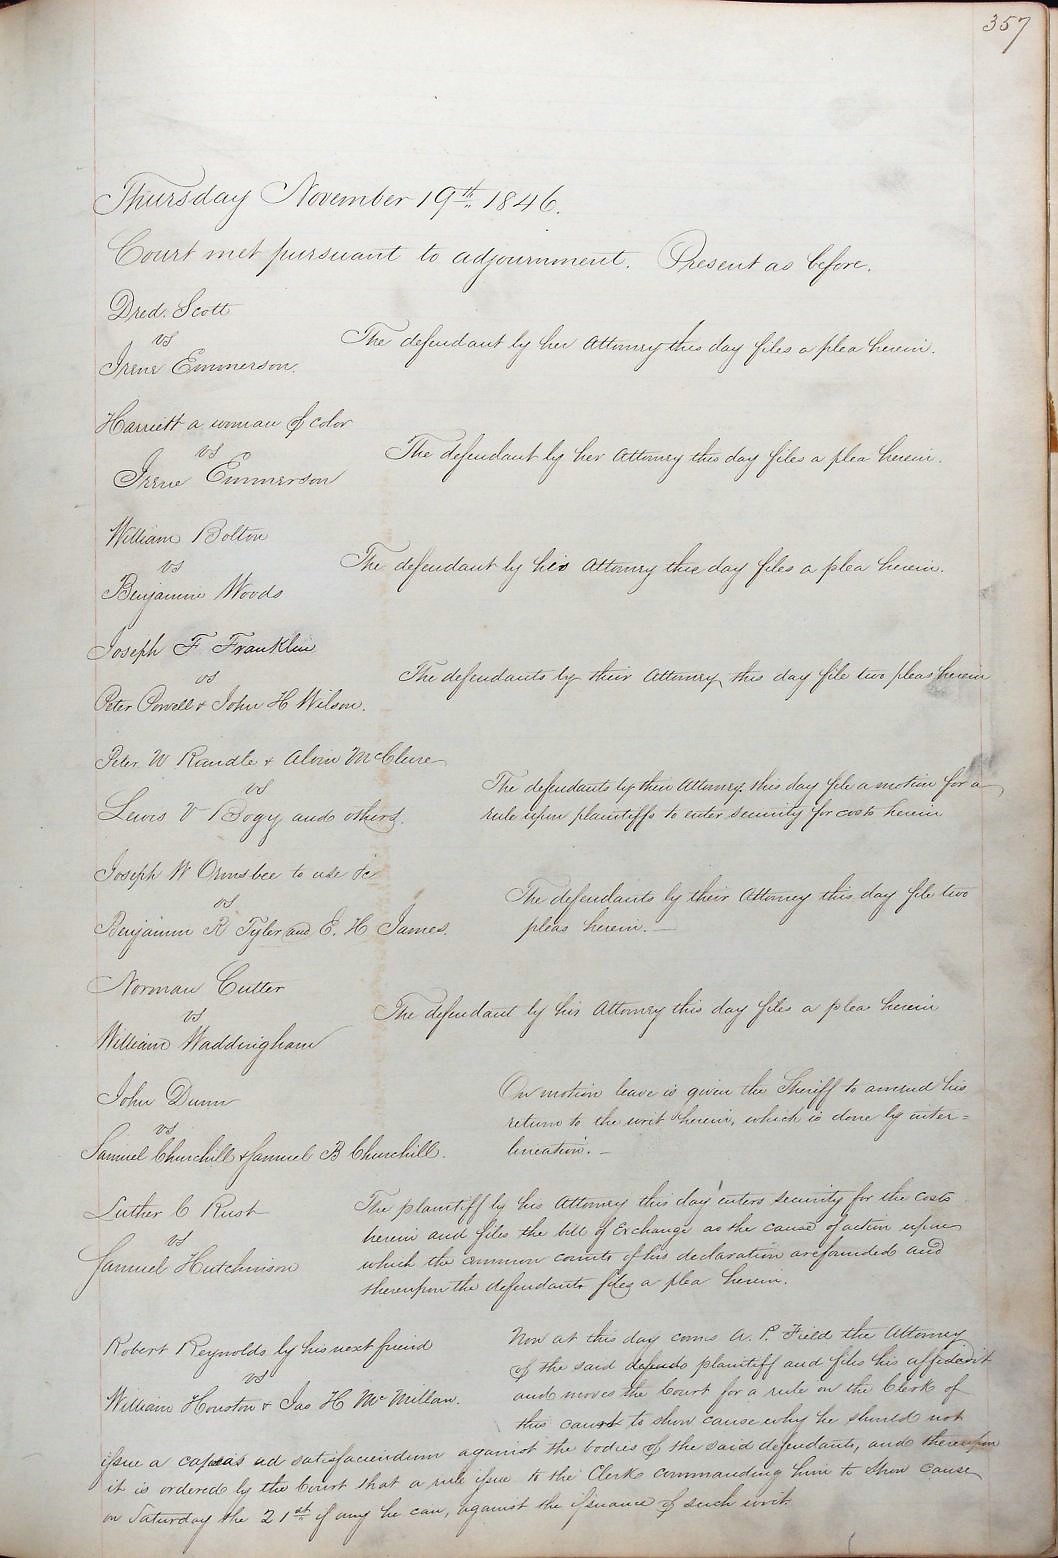 357
Thursday November 19th 1846.
Court met pursuant to adjournment. Present as before.
Dred. Scott
vs
Irene Emmerson.
The defendant by her Attorney this day files a plea herein.
Harriett a woman of color
vs
Irene Emmerson
The defendant by her Attorney this day files a plea herein.
William Bolton
vs
Benjamin Woods
The defendant by his Attorney this day files a plea herein.
Joseph F Franklin
vs
Peter Powell & John H Wilson.
The defendants by their Attorney this day file two pleas herein
Peter W Randle & Alvin McClure
vs
Lewis V Bogy and others.
The defendants by their Attorney this day file a motion for a
rule upon plaintiffs to enter security for costs herein
Joseph W Ormsbee to use &c
vs
Benjamin R Tyler and E. H James.
The defendants by their Attorney this day file two
pleas herein. —
Norman Cutter
vs
William Waddingham
The defendant by his Attorney this day files a plea herein
John Dunn
vs
Samuel Churchill & Samuel B Churchill.
On motion leave is given the Sheriff to amend his
return to the writ herein, which is done by inter=
lineation. —
Luther C Rust
vs
Samuel Hutchinson
The plaintiff by his Attorney this day enters security for the costs
herein and files the bill of Exchange as the cause of action upon
which the common counts of his declaration are founded and
thereupon the defendant files a plea herein.
Robert Reynolds by his next friend
vs
William Houston & Jas H McMillan.
Now at this day comes A. P. Field the Attorney
of the said defends plaintiff and files his affidavit
and moves the Court for a rule on the Clerk of
this court to show cause why he should not
issue a capias ad satisfaciendum against the bodies of the said defendants, and thereupon
it is ordered by the Court that a rule issue to the Clerk commanding him to show cause
on Saturday the 21st if any he can, against the issuance of such writ.